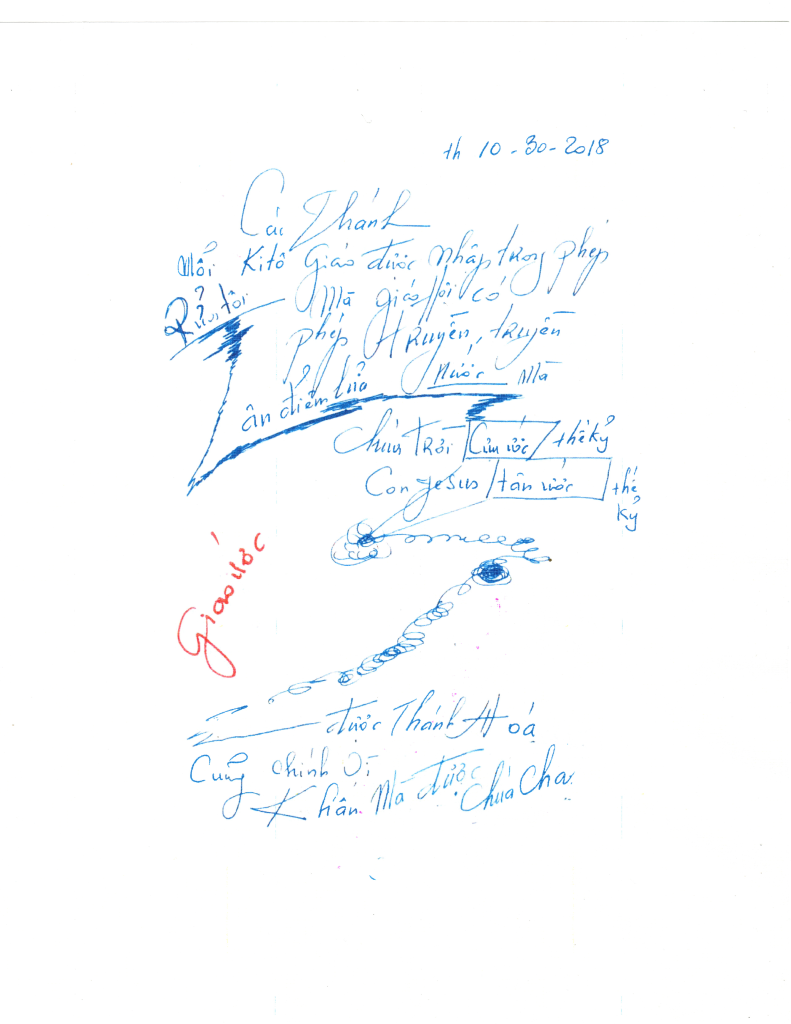 th 10-30-2018
Các Thánh
Mỗi Kitô Giáo được Nhập trong phép
Rửa tội
Mà giáo Hội có
phép Truyền, truyền
Nước Mà
ân điểm lửa
Chúa Trời Cựu ước thế kỷ
Con Jesus tân ước thế
kỷ
Giáo ước
được Thánh Hoá
Cũng chính Vì
Khấn Mà được Chúa Cha.